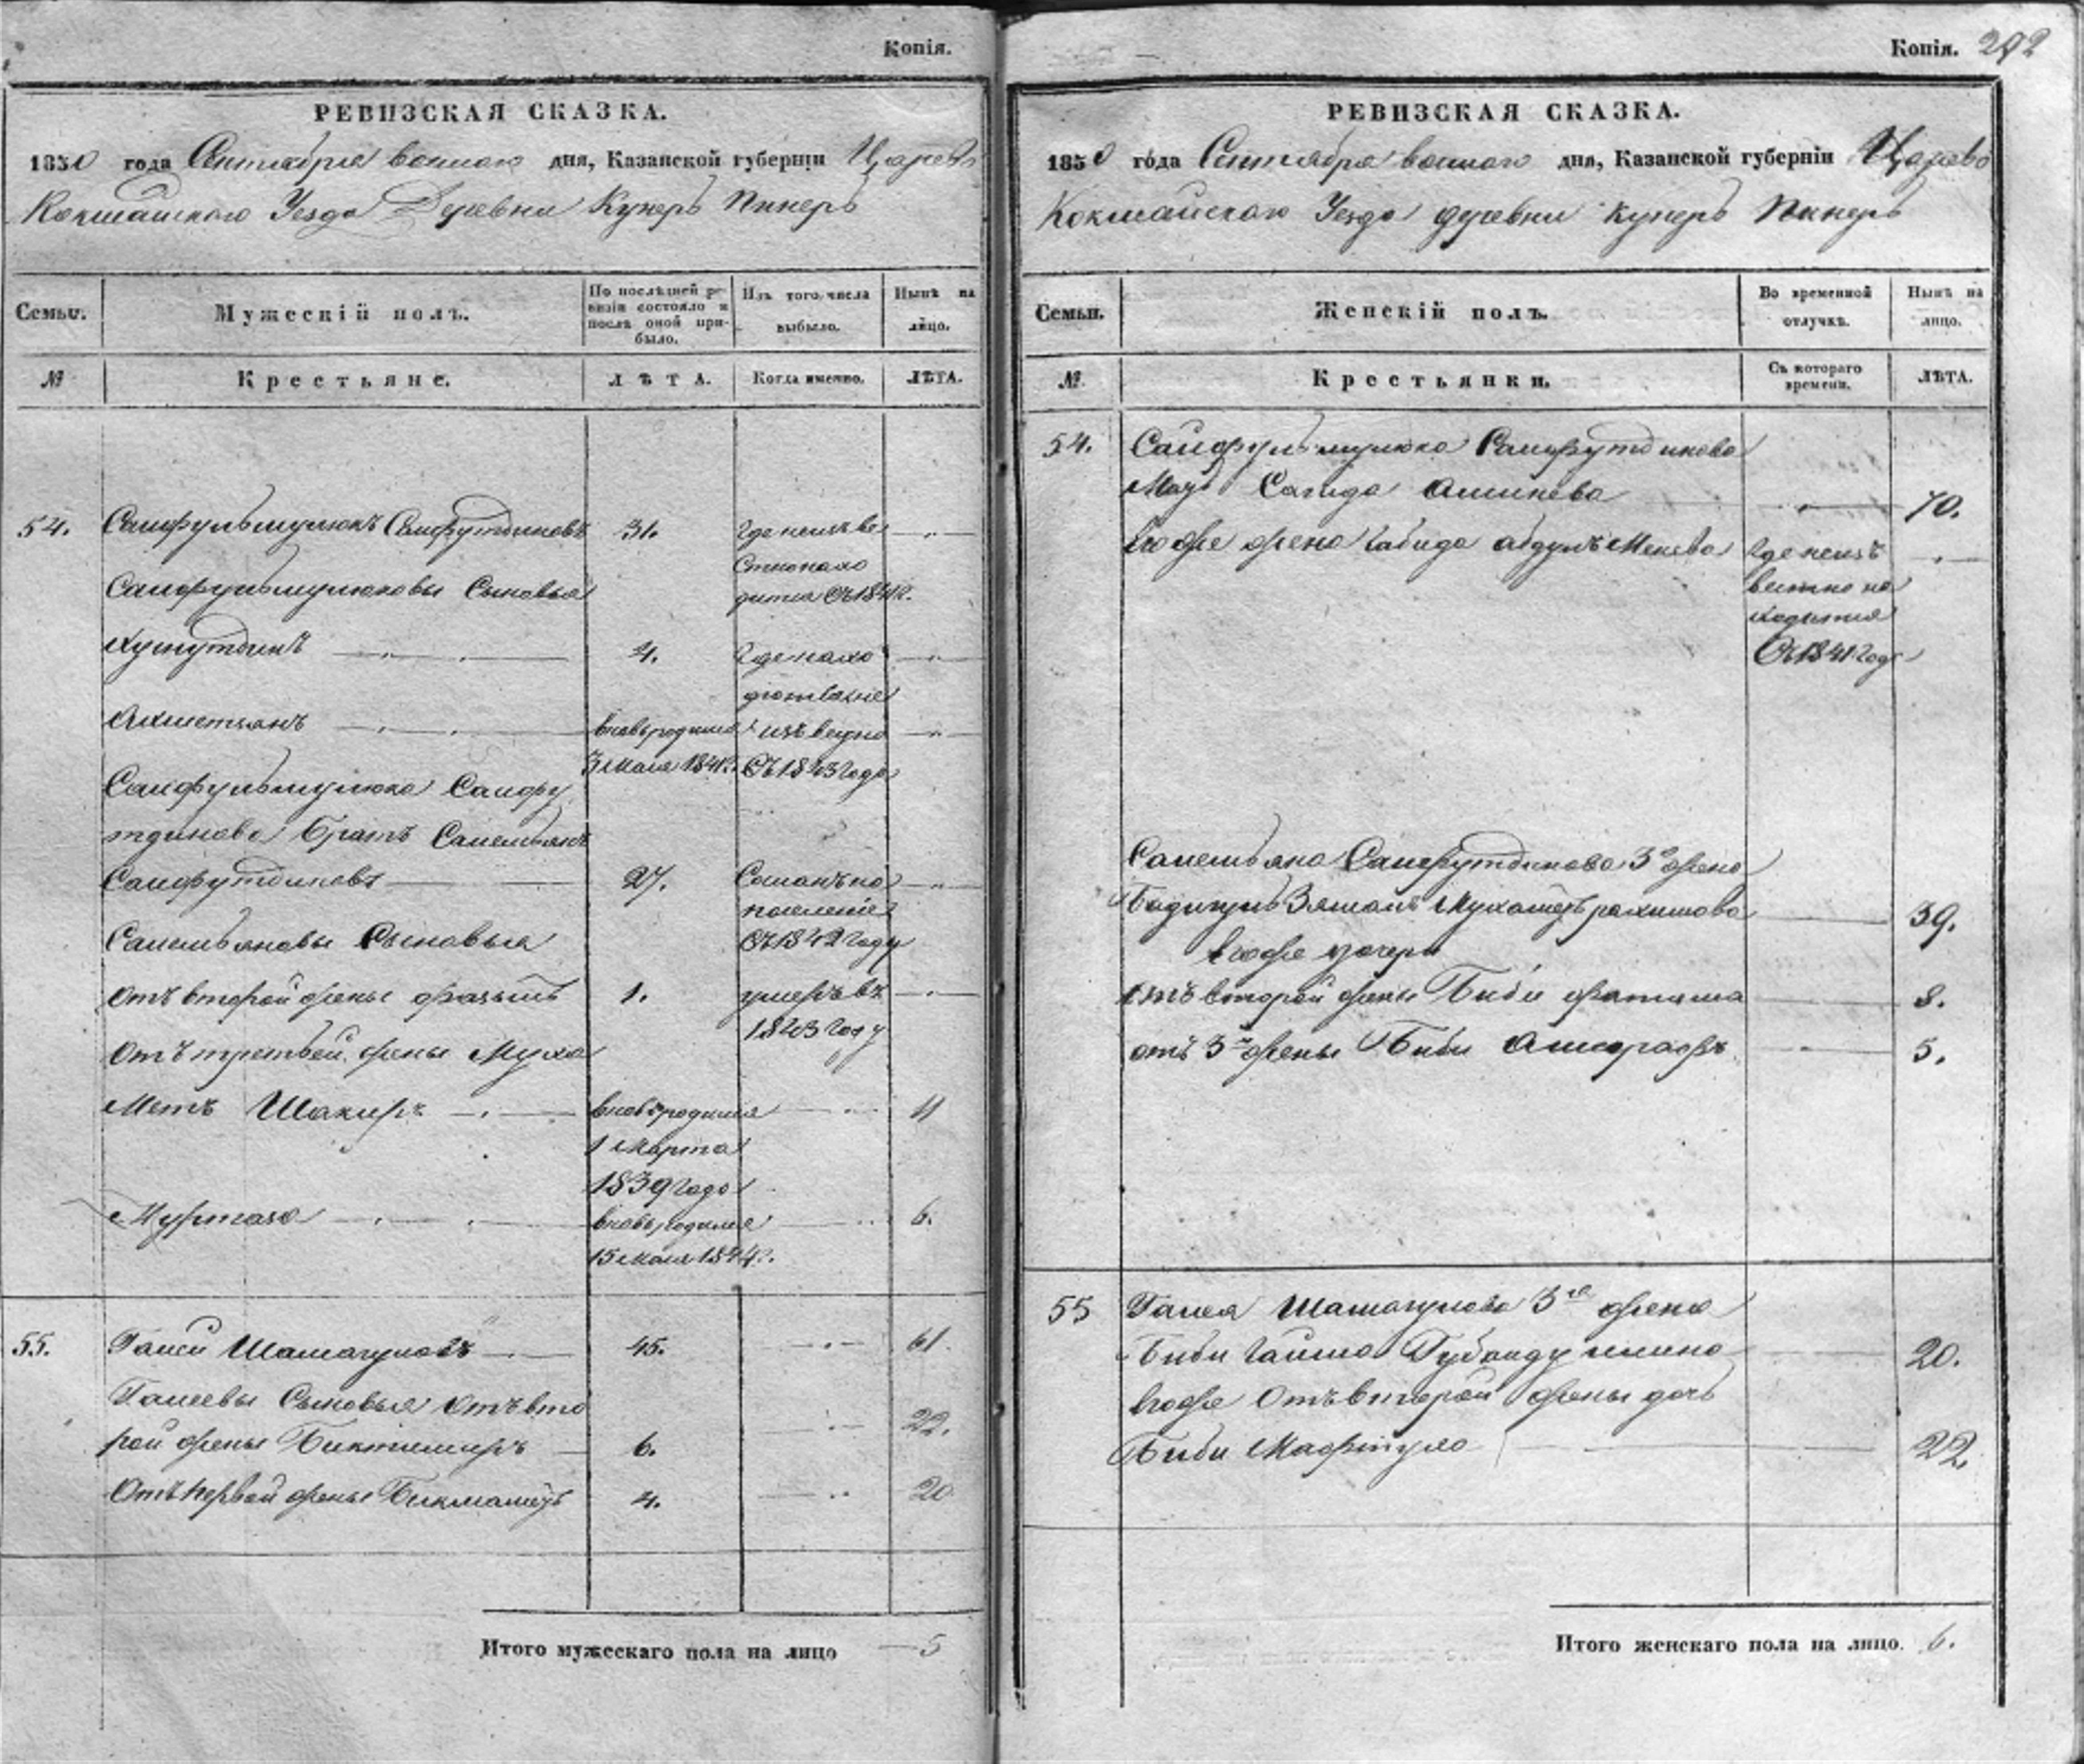 Копія.
РЕВИЗСКАЯ СКАЗКА.
1850 года Сентября восмаго дня, Казанской губерніи Царево
Кокшайскаго Уезда Деревни Кунеръ Пинеръ
Семьи. Мужескій полъ. По послѣдней ревизіи состояло и послѣ оной прибыло. Изъ того числа выбыло. Нынѣ на лицо.
№ Крестьяне. ЛѢТА. Когда именно. ЛѢТА.
54. Сайфульмулюкъ Сайфутдиновъ 31. Где неизве
стно нахо
Сайфульмулюковы Сыновья дится Съ 1841 г.
Хузутдинъ 4. Где нахо
дются не
Ахметзянъ вновь родился изъвесно
3 Мая 1841 г. Съ 1843 года
Сайфульмулюка Сайфу
тдинова Братъ Самельянъ
Сайфутдиновъ 27. Сосланъ на
поселение
Самельяновы Сыновья Съ 1842 году
Отъ второй жены Фазылъ 1. умеръ въ
1843 году
Отъ третьей жены Муха
Метъ Шакиръ вновь родился 11
1 Марта
1839 года
Муртаза вновь родился 6.
15 Мая 1844 г.
55. Галей Шамагуловъ 45. 61.
Галеевы Сыновья Отъ вто 22.
рой жены Биктимиръ 6.
Отъ первой жены Бикмаметъ 4. 20
Итого мужескаго пола на лицо 5
Копія. 292
РЕВИЗСКАЯ СКАЗКА.
1850 года Сентября восмаго дня, Казанской губерніи Царево
Кокшайскаго Уезда деревни Кунеръ Пинеръ
Семьи. Женскій полъ. Во временной отлучкѣ. Нынѣ на лицо.
№ Крестьянки. Съ котораго времени. ЛѢТА.
54. Сайфульмулюка Сайфутдинова
Мать Сагида Аминева 70.
Его же жена Габида Абдулъ Менева Где неизъ
вестно на
ходится
Съ 1841 года
Самельяна Сайфутдинова 3я жена
Мухаметъ рахимова 39.
Его же дочери
отъ второй жены Биби Фатима 8.
отъ 3й жены Биби Ашрафъ 5.
55 Галея Шамагулова 3я жена
Биби Гайша 20.
Его же Отъ второй жены дочь
Биби 22.
Итого женскаго пола на лицо. 6.